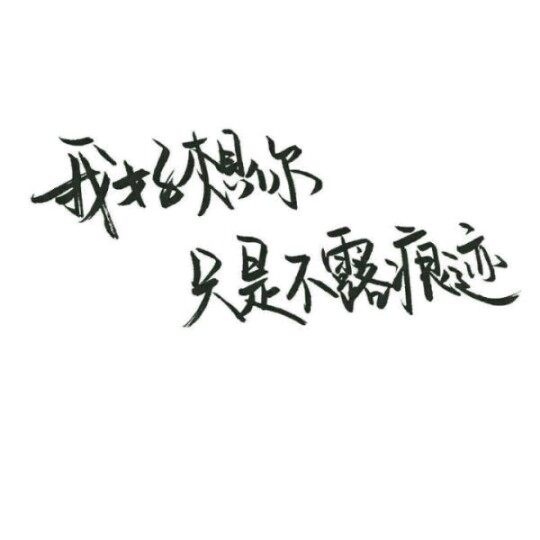 我好想你
只是不露痕迹